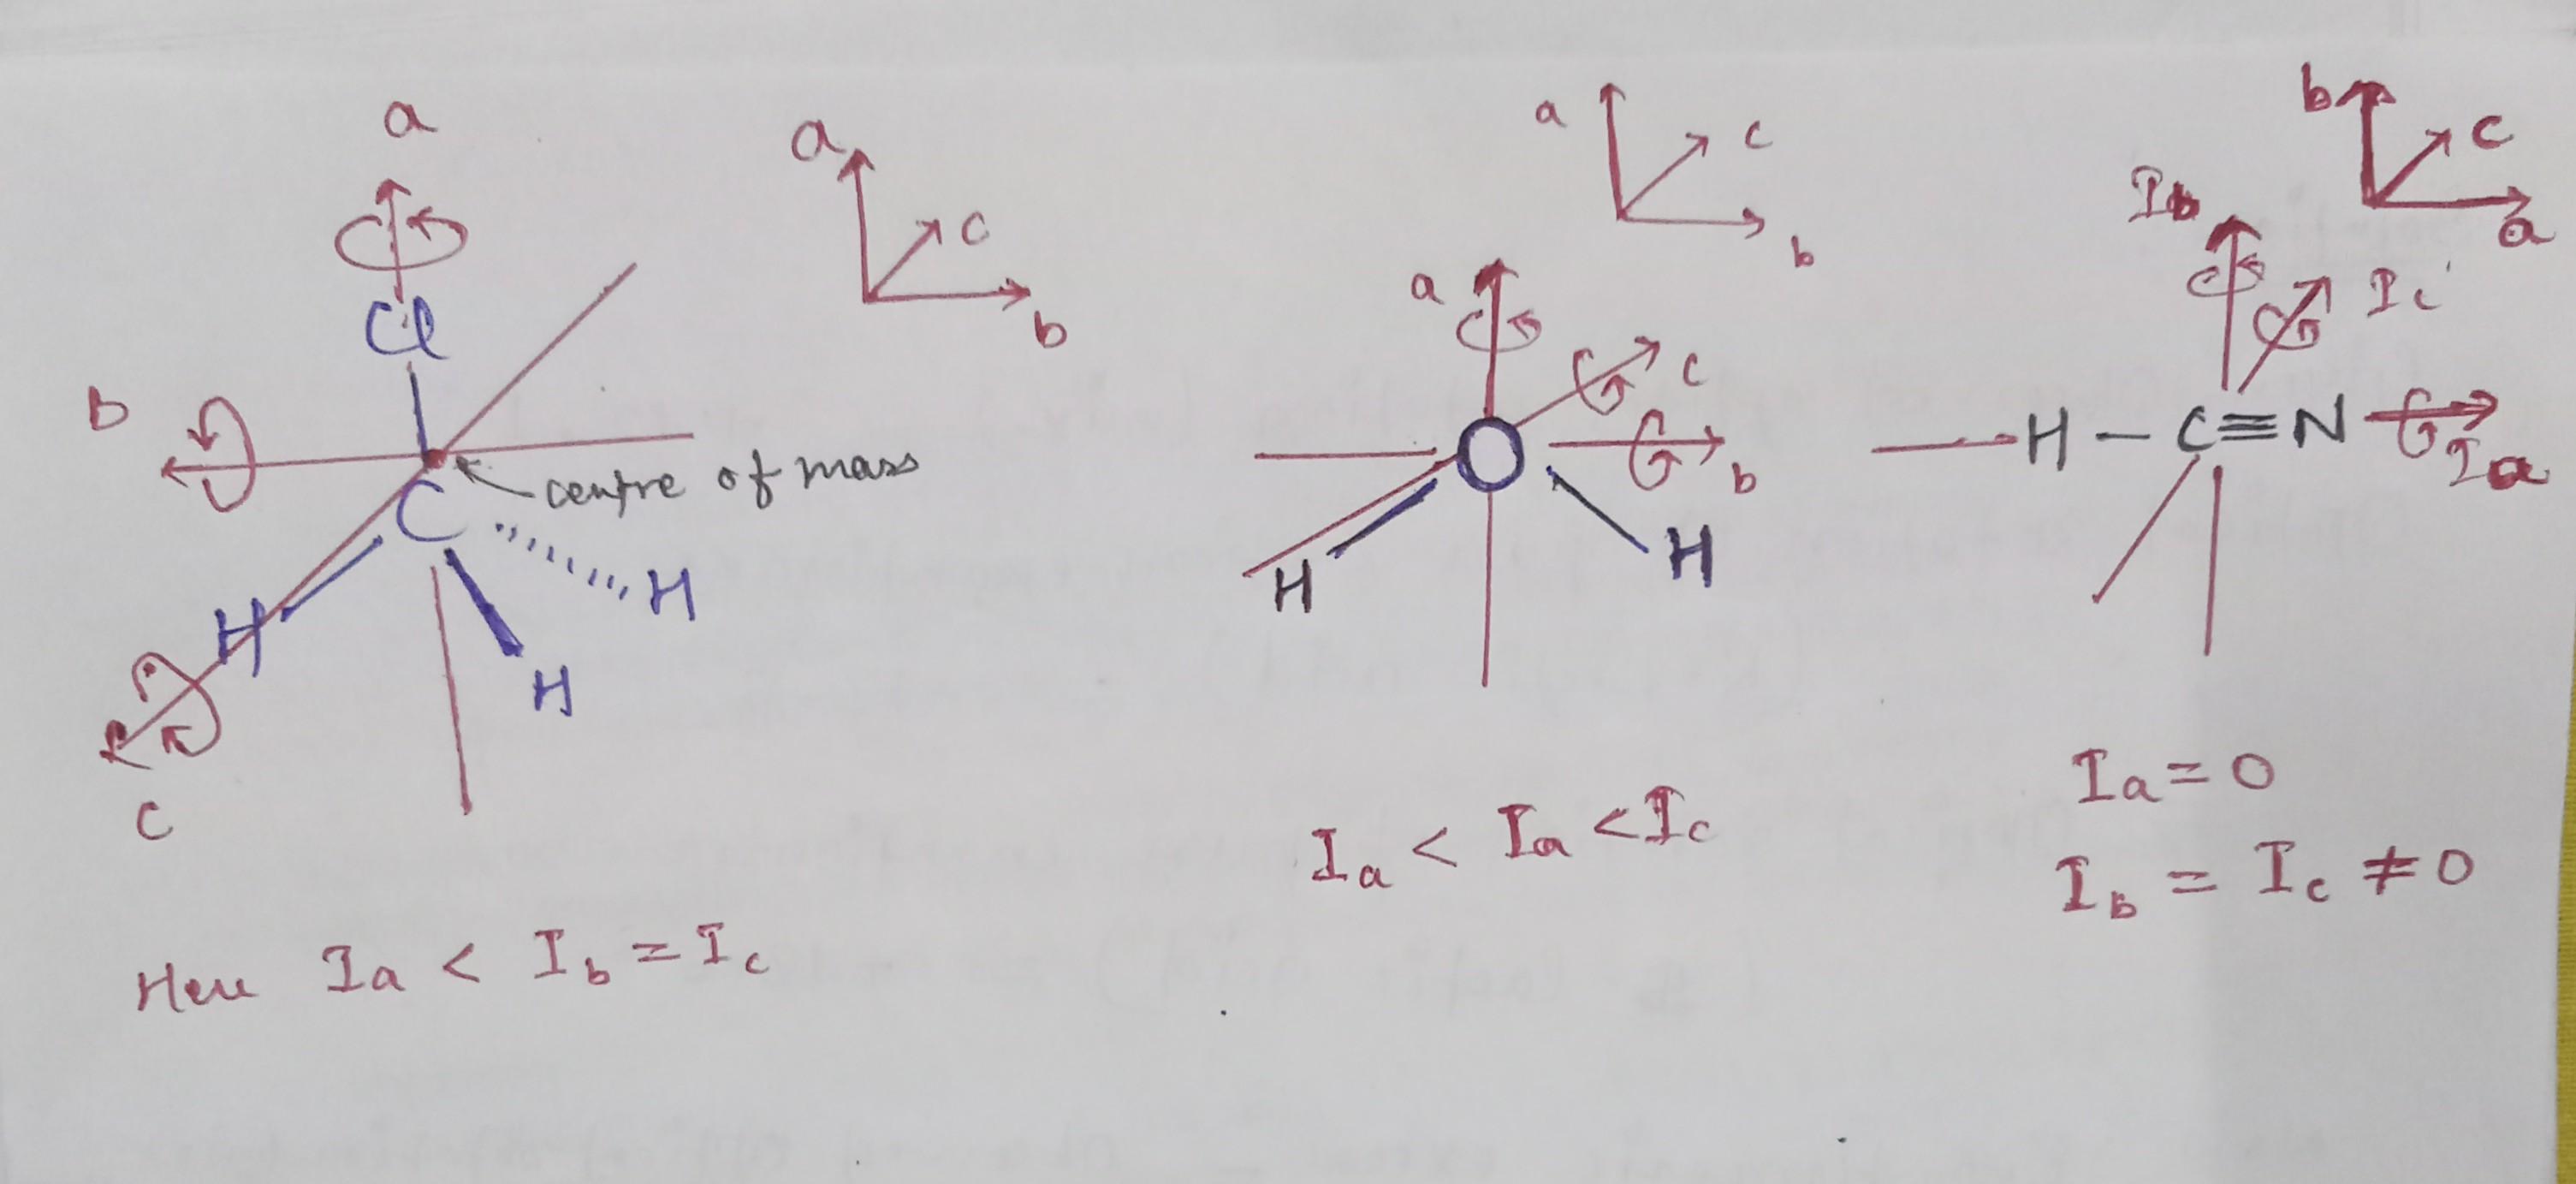 a
Cl
b
centre of mass
C
H
H
H
c
Here Ia < Ib = Ic
a
c
b
a
c
b
a
c
b
O
H
H
Ia < Ia < Ic
b
c
a
Ib
Ic
H – C ≡ N
Ia
Ia = 0
Ib = Ic ≠ 0